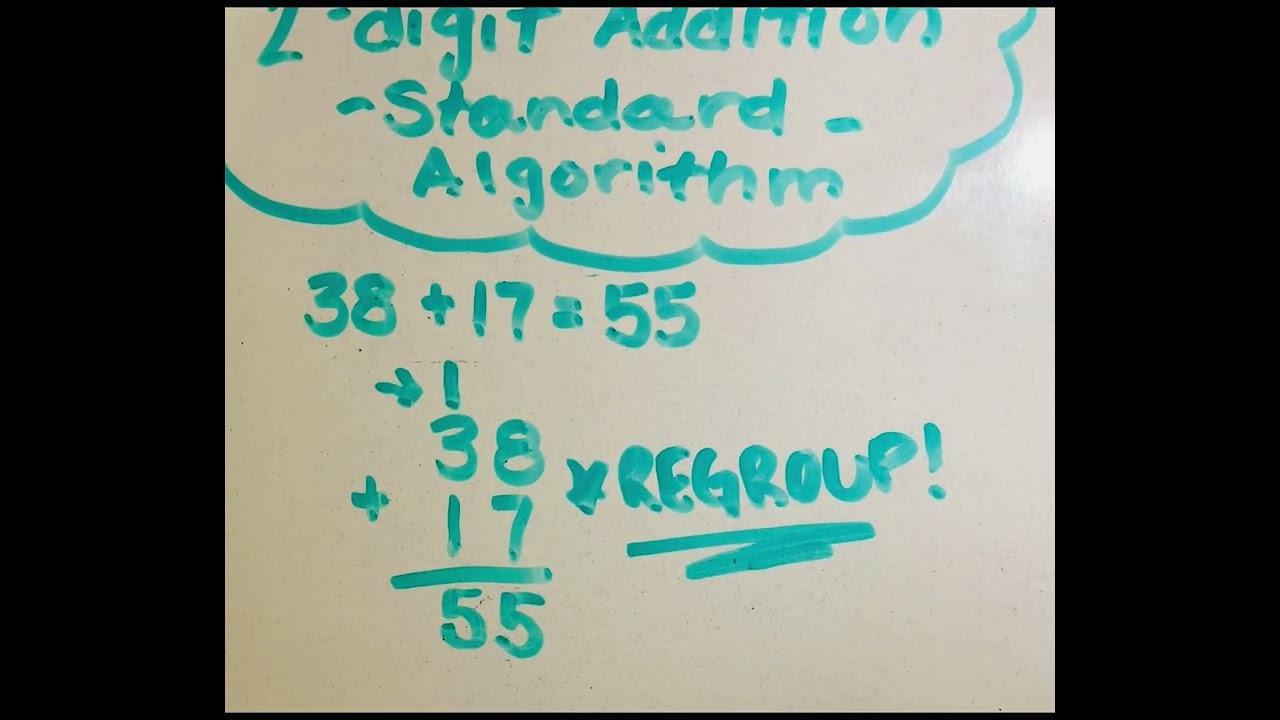 2-digit Addition
-Standard-
Algorithm
38 + 17 = 55
→ 1
38
+ 17
55
*REGROUP!